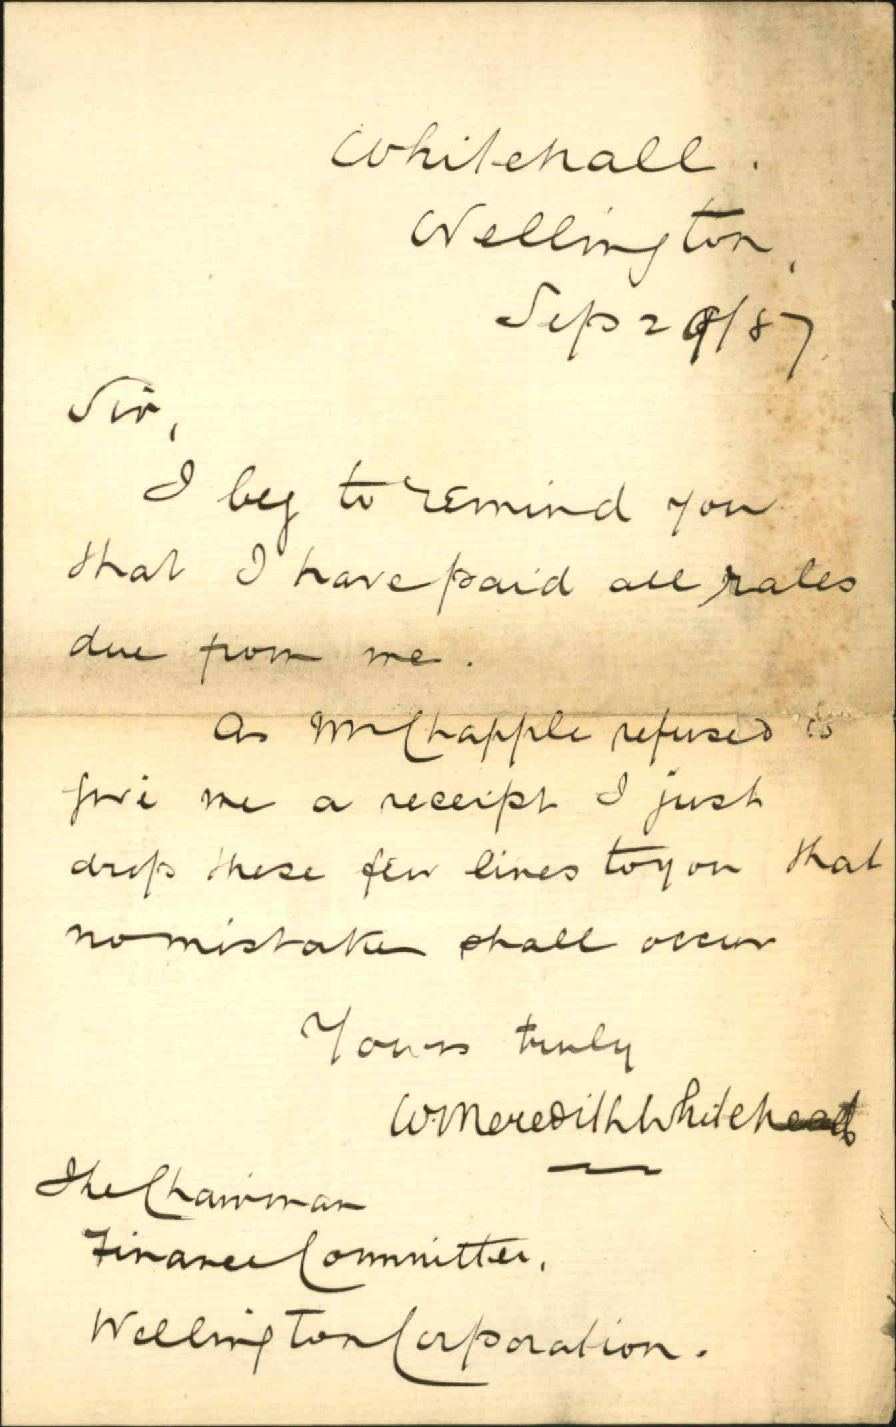 Whitehall.
Wellington,
Sep 29/87.
Sir,
I beg to remind you
that I have paid all rates
due from me.
As Mr Chapple refused to
give me a receipt I just
drop these few lines to you that
no mistake shall occur
Yours truly
W. Meredith Whitehead
The Chairman
Finance Committee,
Wellington Corporation.